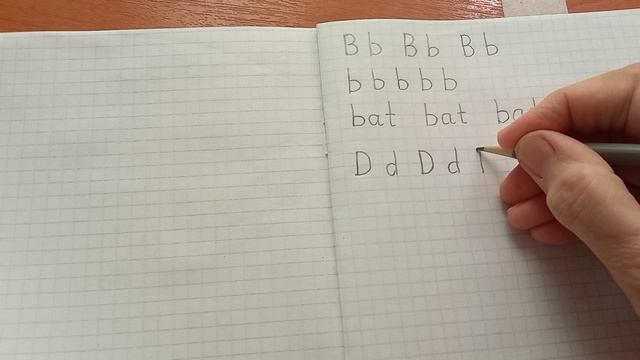 Bb Bb Bb
b b b b b
bat bat bat
D d D d